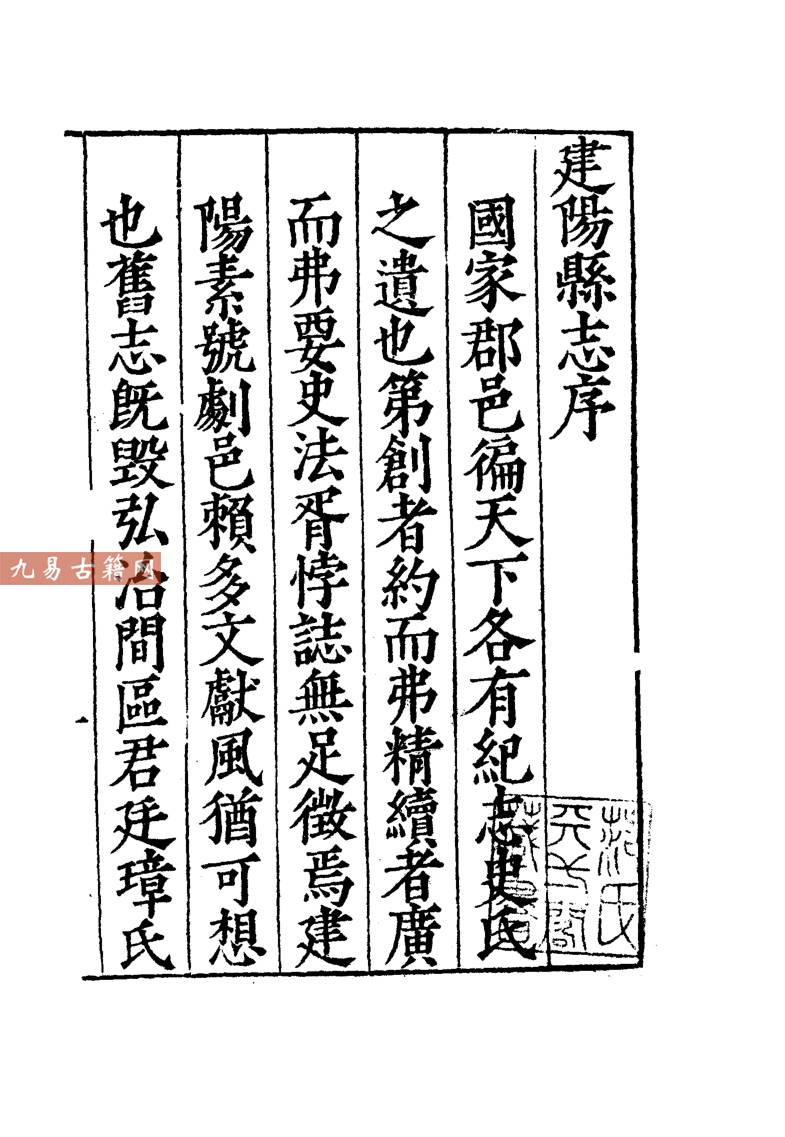 建陽縣志序
國家郡邑徧天下各有紀志史氏
之遺也第創者約而弗精續者廣
而弗要史法胥悖誌無足徵焉建
陽素號劇邑賴多文獻風猶可想
也舊志旣毀弘治間區君廷璋氏
范氏
天一閣
藏書
九易古籍网